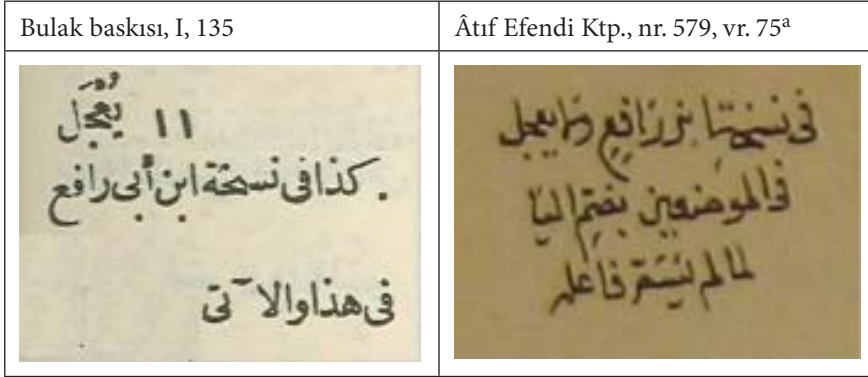 Bulak baskısı, I, 135
Âtıf Efendi Ktp., nr. 579, vr. 75a
١١ يُعَجَّل
. كذا فى نسخة ابن أبى رافع
فى هذا والآتى
فى نسخة ابن رافع يعجل
فى الموضعين بضم اليا
لما لم يسم فاعله